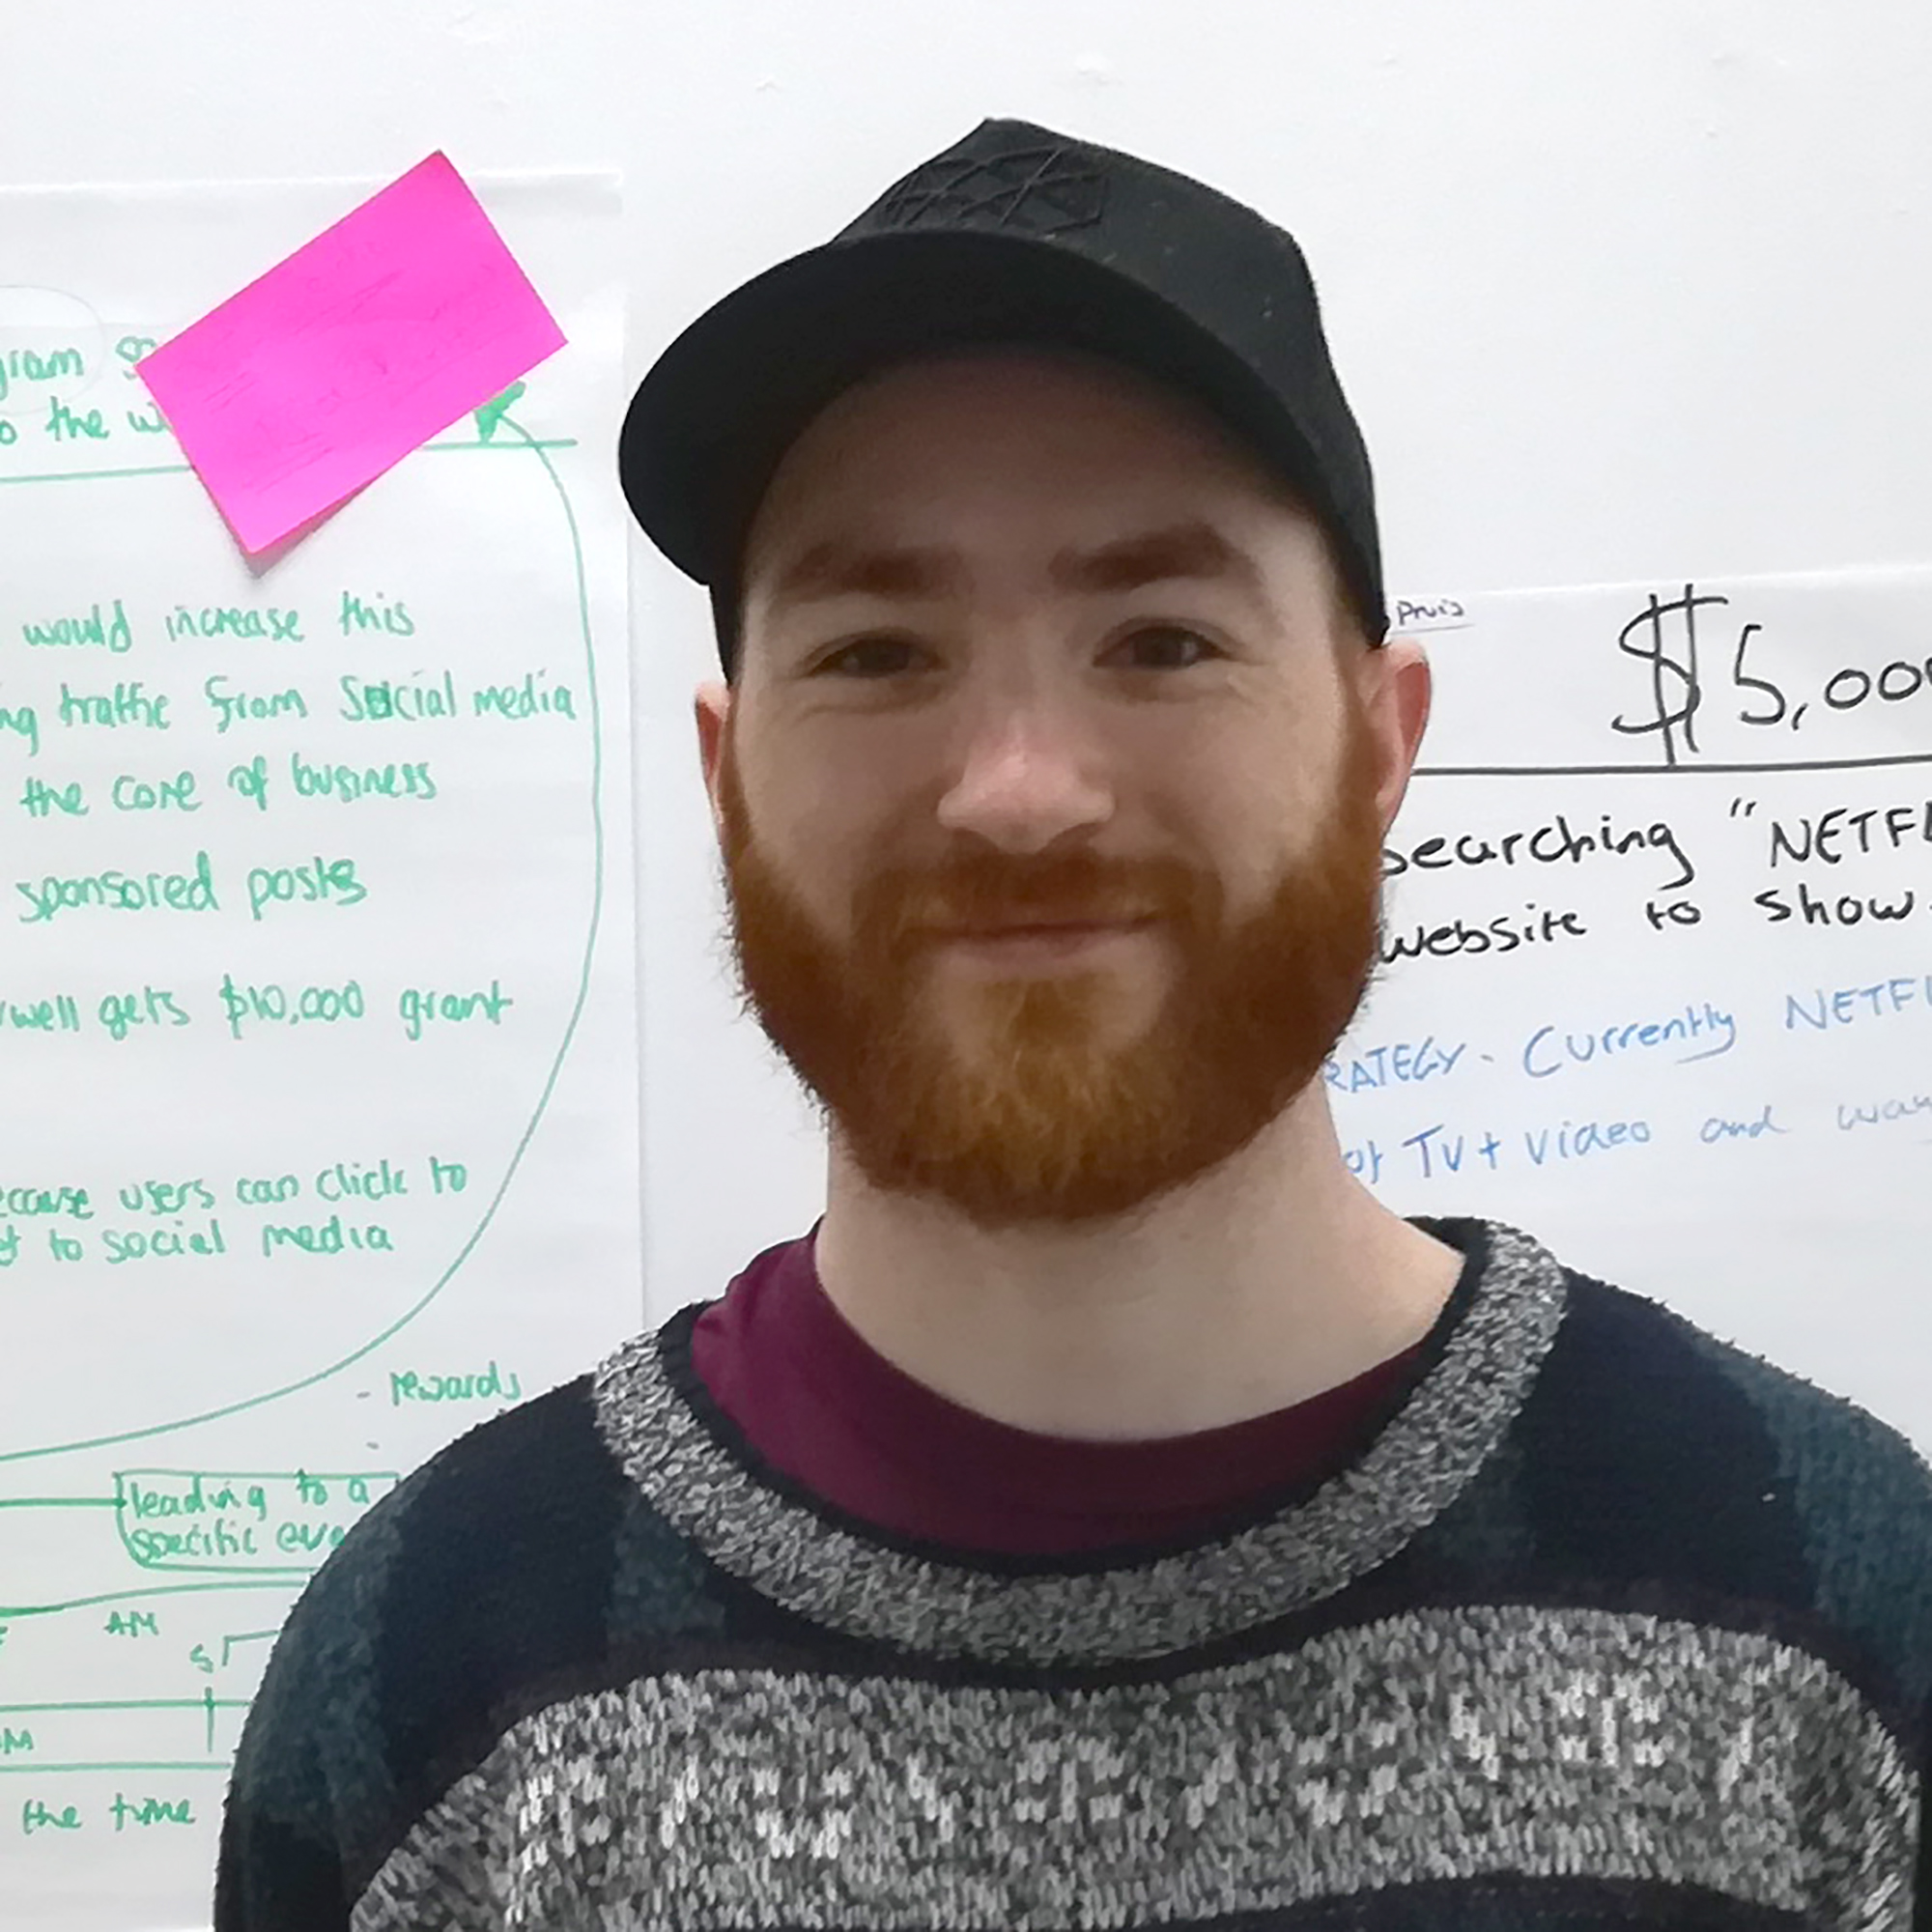 to the
would increase this
traffic from Social media
the core of business
sponsored posts
gets $10,000 grant
users can click to
to social media
- rewards
leading to a
specific
AM
5
the time
$5,00
searching "NETFL
website to show
RATEGY. Currently NETFL
of TV + video and